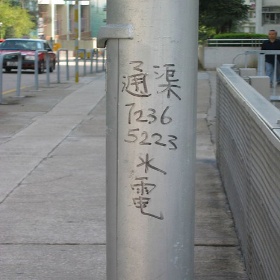 通渠
7236
5223
水電